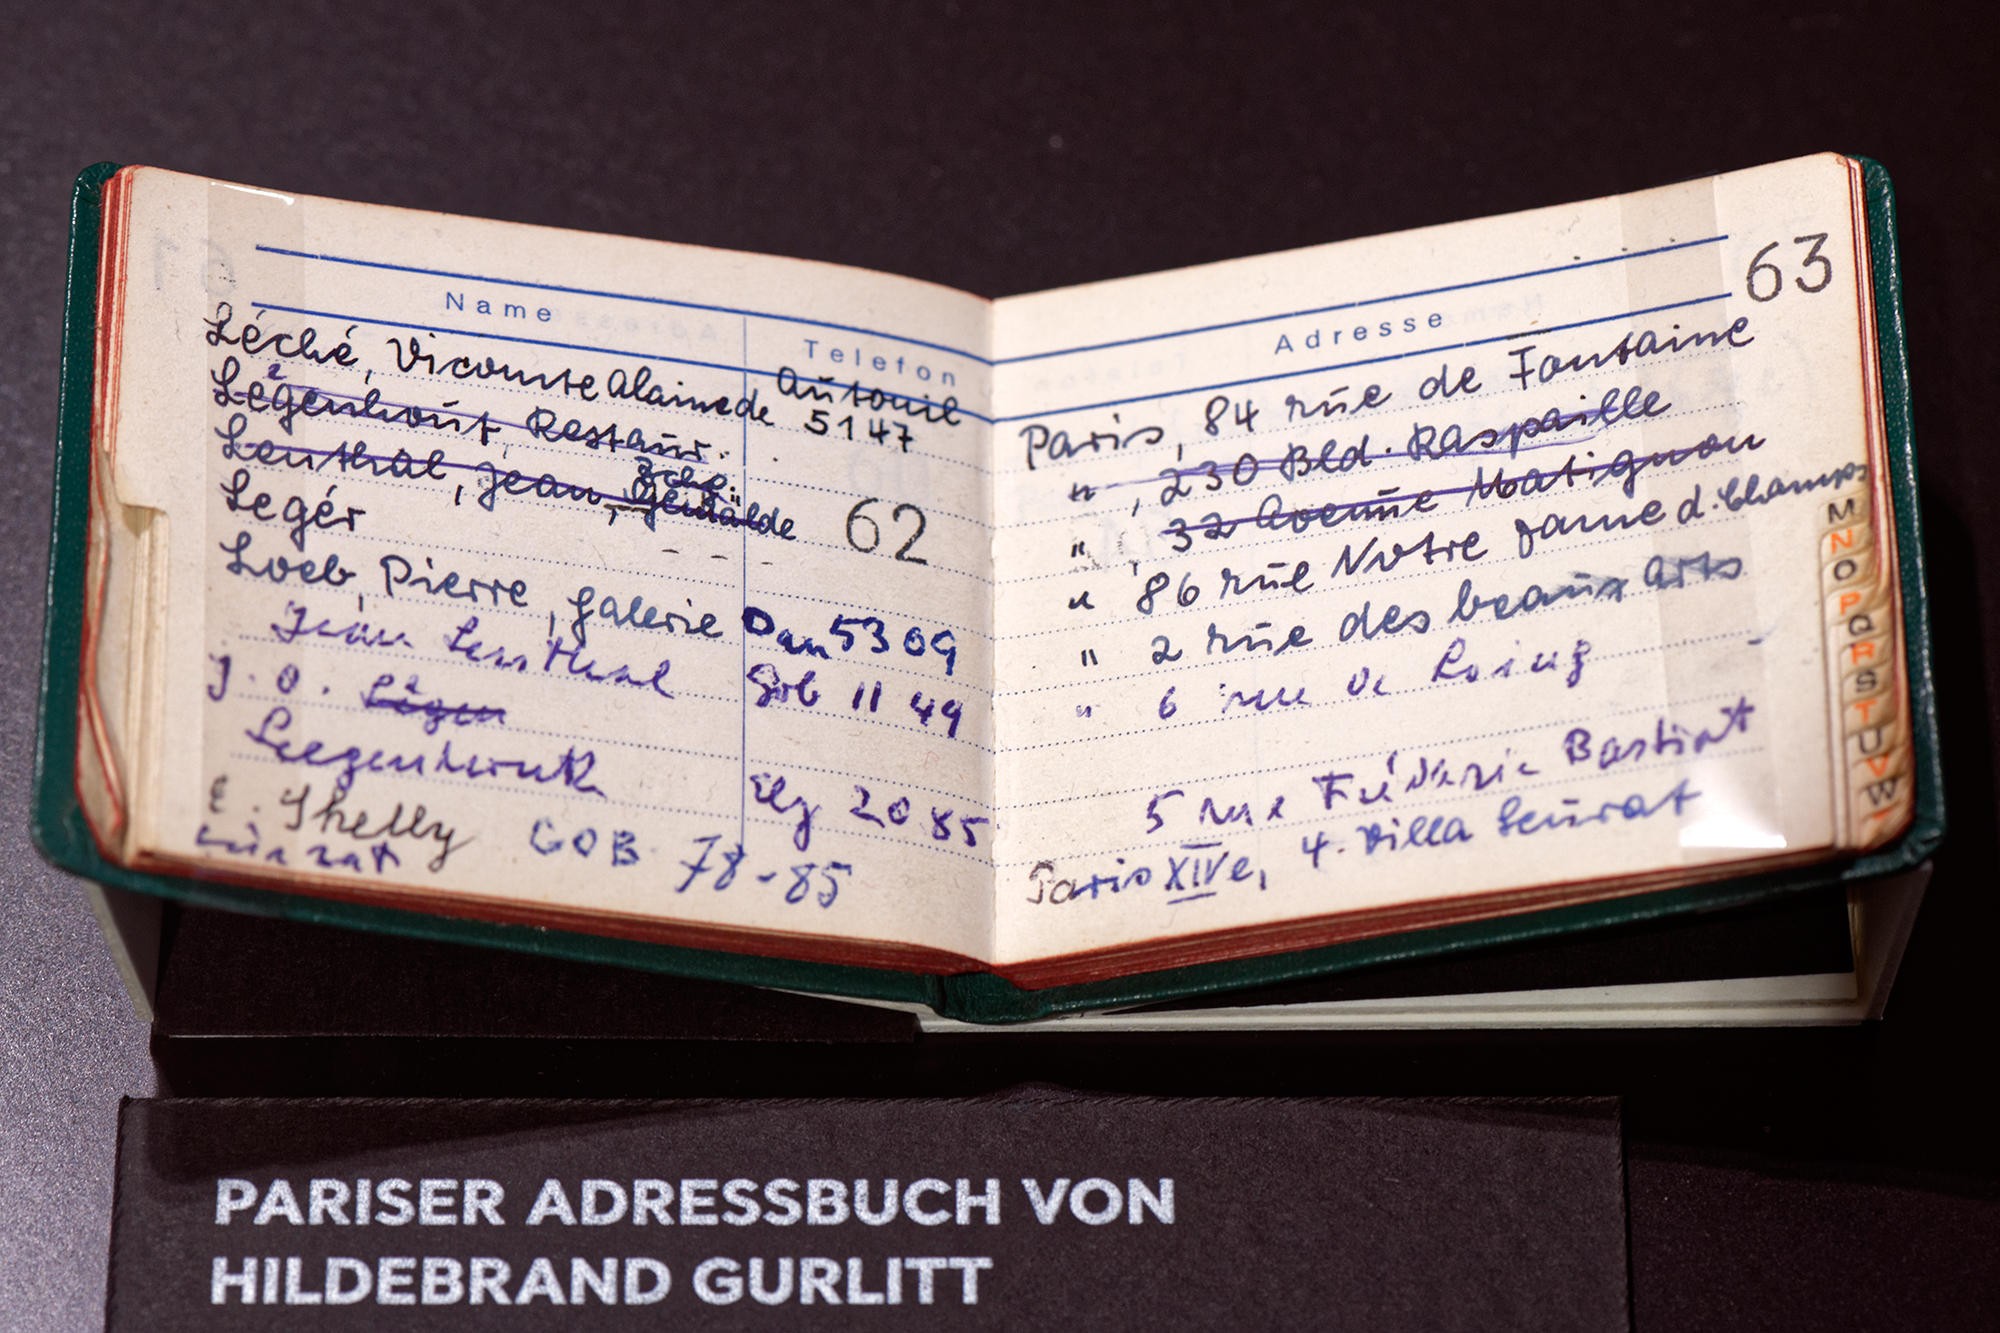 Name Telefon
Léché, Vicomte Alain de Auteuil 5147
Légenhout, Restaur.
Lenthal, Jean, Gemälde
Legér
62
Loeb, Pierre, Galerie Dan 53 09
Jean Lenthal Gob 11 49
J. O. Légen
Leegenhoek 20 85
E. Shelly GOB 78-85
Adresse
63
Paris, 84 rue de Fontaine
" , 230 Bld. Raspaille
" , 32 Avenue Matignon
" 86 rue Notre dame d. Champs
" 2 rue des beaux arts
" 6 rue de Loing
5 rue Fréderic Bastiat
Paris XIVe, 4. Villa Seurat
M
N
O
P
Q
R
S
T
U
V
W
PARISER ADRESSBUCH VON
HILDEBRAND GURLITT